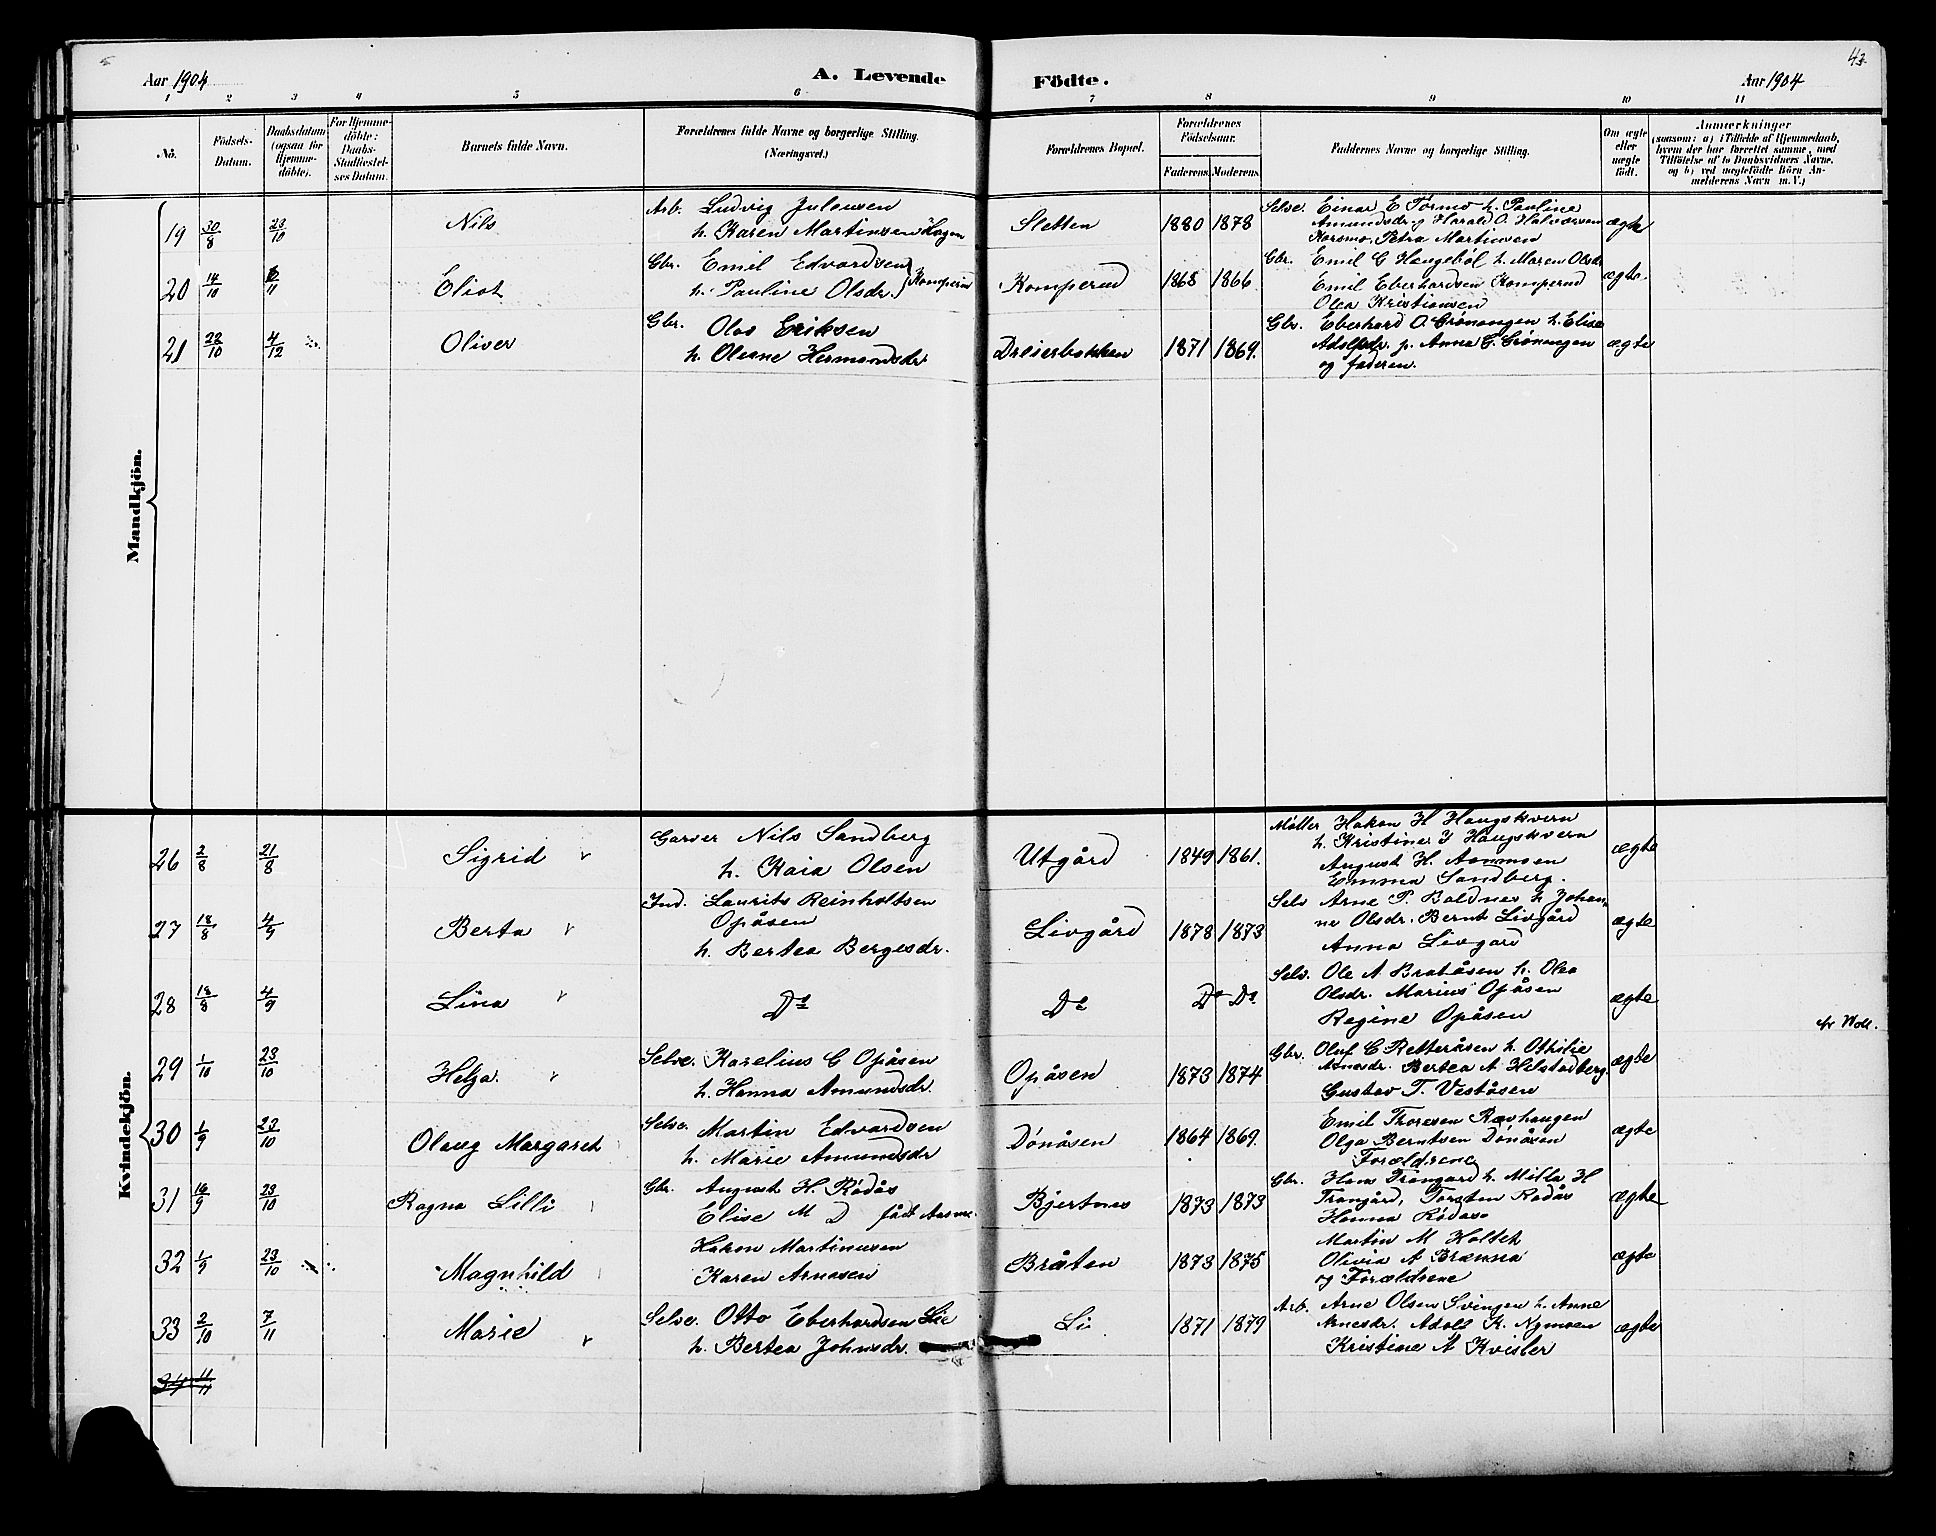 43
Aar 1904
A. Levende
Födte.
Aar 1904
1 2 3 4 5 6 7 8 9 10 11
No.
Födsels-
Datum.
Daabsdatum
(ogsaa for
Hjemme-
döbte).
For Hjemme-
döbte:
Daabs-
Stadfæstel-
ses Datum.
Barnets fulde Navn.
Forældrenes fulde Navne og borgerlige Stilling.
(Næringsvei.)
Forældrenes Bopæl.
Forældrenes
Födselsaar.
Faderens. Moderens.
Faddernes Navne og borgerlige Stilling.
Om ægte
eller
uægte
födt.
Anmærkninger
(saasom: a) i Tilfælde af Hjemmedaab,
hvem der har forrettet samme, med
Tilföielse af to Daabsvidners Navne,
og b) ved uægtefödte Börn An-
melderens Navn m. V.)
Mandkjön.
19 30/8 23/10 Nils
Arb. Ludvig Julausen
h. Karen Martinsen Hagen
Sletten 1880 1878
Selve. Einar E Tormo h. Pauline
Amundsdr. g Harald O. Halvorsen
Karsmo, Petra Martinsen
ægte
20 14/10 6/11 Eliot
Gbr. Emil Edvardsen
h. Pauline Olsdr. Komperud
Komperud 1868 1866
Gbr. Emil G Haugeböl h. Maren Olsdr
Emil Eberhardsen Komperud
Olea Kristiansen
ægte.
21 22/10 4/12 Oliver
Gbr. Olav Eriksen
h. Oleane Hermansdr
Dreierbakken 1871 1869.
Gbr. Eberhard O. Grönengen h. Elise
Adolfsdr. p. Anna G. Grönengen
og faderen.
ægte
Kvindekjön.
26 2/8 21/8 Sigrid
Garver Nils Sandberg
h. Kaia Olsen
Utgård 1849 1861.
Møller Hakon H Haugskvern
h. Kristine J Haugskvern
August H. Aanmoen
Emma Sandberg.
ægte
27 18/8 4/9 Berta
Ind. Laurits Reinholtsen
Opåsen
h. Bertea Bergesdr.
Livgård 1878 1873
Selv Arne P. Baldnes h Johan-
ne Olsdr. Bernt Livgård
Anna Livgard
ægte
28 18/8 4/9 Lina
Do
Do Do Do
Selv. Ole A Bratåsen h. Olea
Olsdr. Marius Opåsen
Regine Opåsen
ægte
29 1/10 23/10 Helga.
Selve. Karelius G Opåsen
h. Hanna Amundsdr.
Opåsen 1873 1874
Gbr. Oluf C Retteråsen h. Othilie
Arnesdr. Bertea A Helstadberg
Gustav T. Veståsen
ægte
30 1/9 23/10 Olaug Margaret
Selve. Martin Edvardsen
h. Marie Amundsdr
Dönåsen 1864 1869.
Emil Thoresen Ravhaugen
Olga Berntsen Dönåsen
Forældrene
ægte
31 16/9 23/10 Ragna Lilli
Gbr. August H. Rödås
Elise M D födt
Bjertnes 1873 1873
Gbr. Hans Trangard h. Milla H
Trangård, Torsten Rödås
Hanna Rödås
ægte
32 1/9 23/10 Magnhild
Hakon Martinusen
Karen Arnesen
Bråten 1873 1875
Martin M Holtet
Olivia A Brænna
og Forældrene
ægte
33 2/10 7/11 Marie
Selve. Otto Eberhardsen Lie
h. Bertea Johnsdr.
Li 1871 1879
Arb. Arne Olsen Svingen h. Anne
Arnesdr. Adolf K. Nymoen
Kristine A Kvisler
ægte
34 11/11